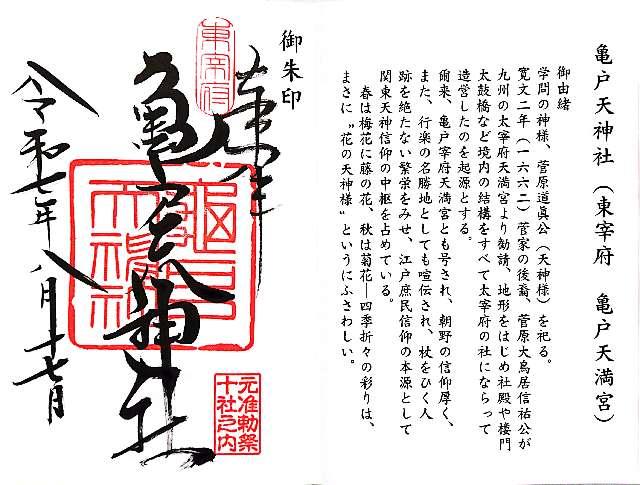 亀戸天神社（東宰府　亀戸天満宮）
御由緒
学問の神様、菅原道眞公（天神様）を祀る。
寛文二年（一六六二）菅家の後裔、菅原大鳥居信祐公が
九州の太宰府天満宮より勧請、地形をはじめ社殿や楼門
太鼓橋など境内の結構をすべて太宰府の社にならって
造営したのを起源とする。
爾来、亀戸宰府天満宮とも号され、朝野の信仰厚く、
また、行楽の名勝地としても喧伝され、杖をひく人
跡を絶たない繁栄をみせ、江戸庶民信仰の本源として
関東天神信仰の中枢を占めている。
春は梅花に藤の花、秋は菊花―四季折々の彩りは、
まさに〝花の天神様〟というにふさわしい。
御朱印
奉拝
東宰府
亀戸天神社
元准勅祭
十社之内
令和七年八月十七日